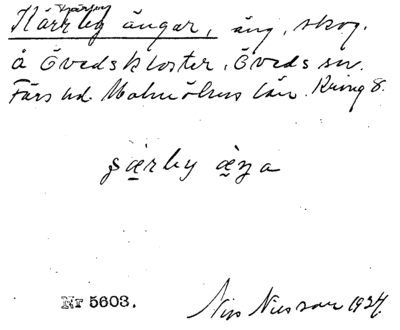 Kärrby ängar, äng, skog.
å Övedskloster, Öveds sn.
Färs hd. Malmöhus län. Kring 8.
särby äŋa
Nr 5603.
Nils Nilsson 1924